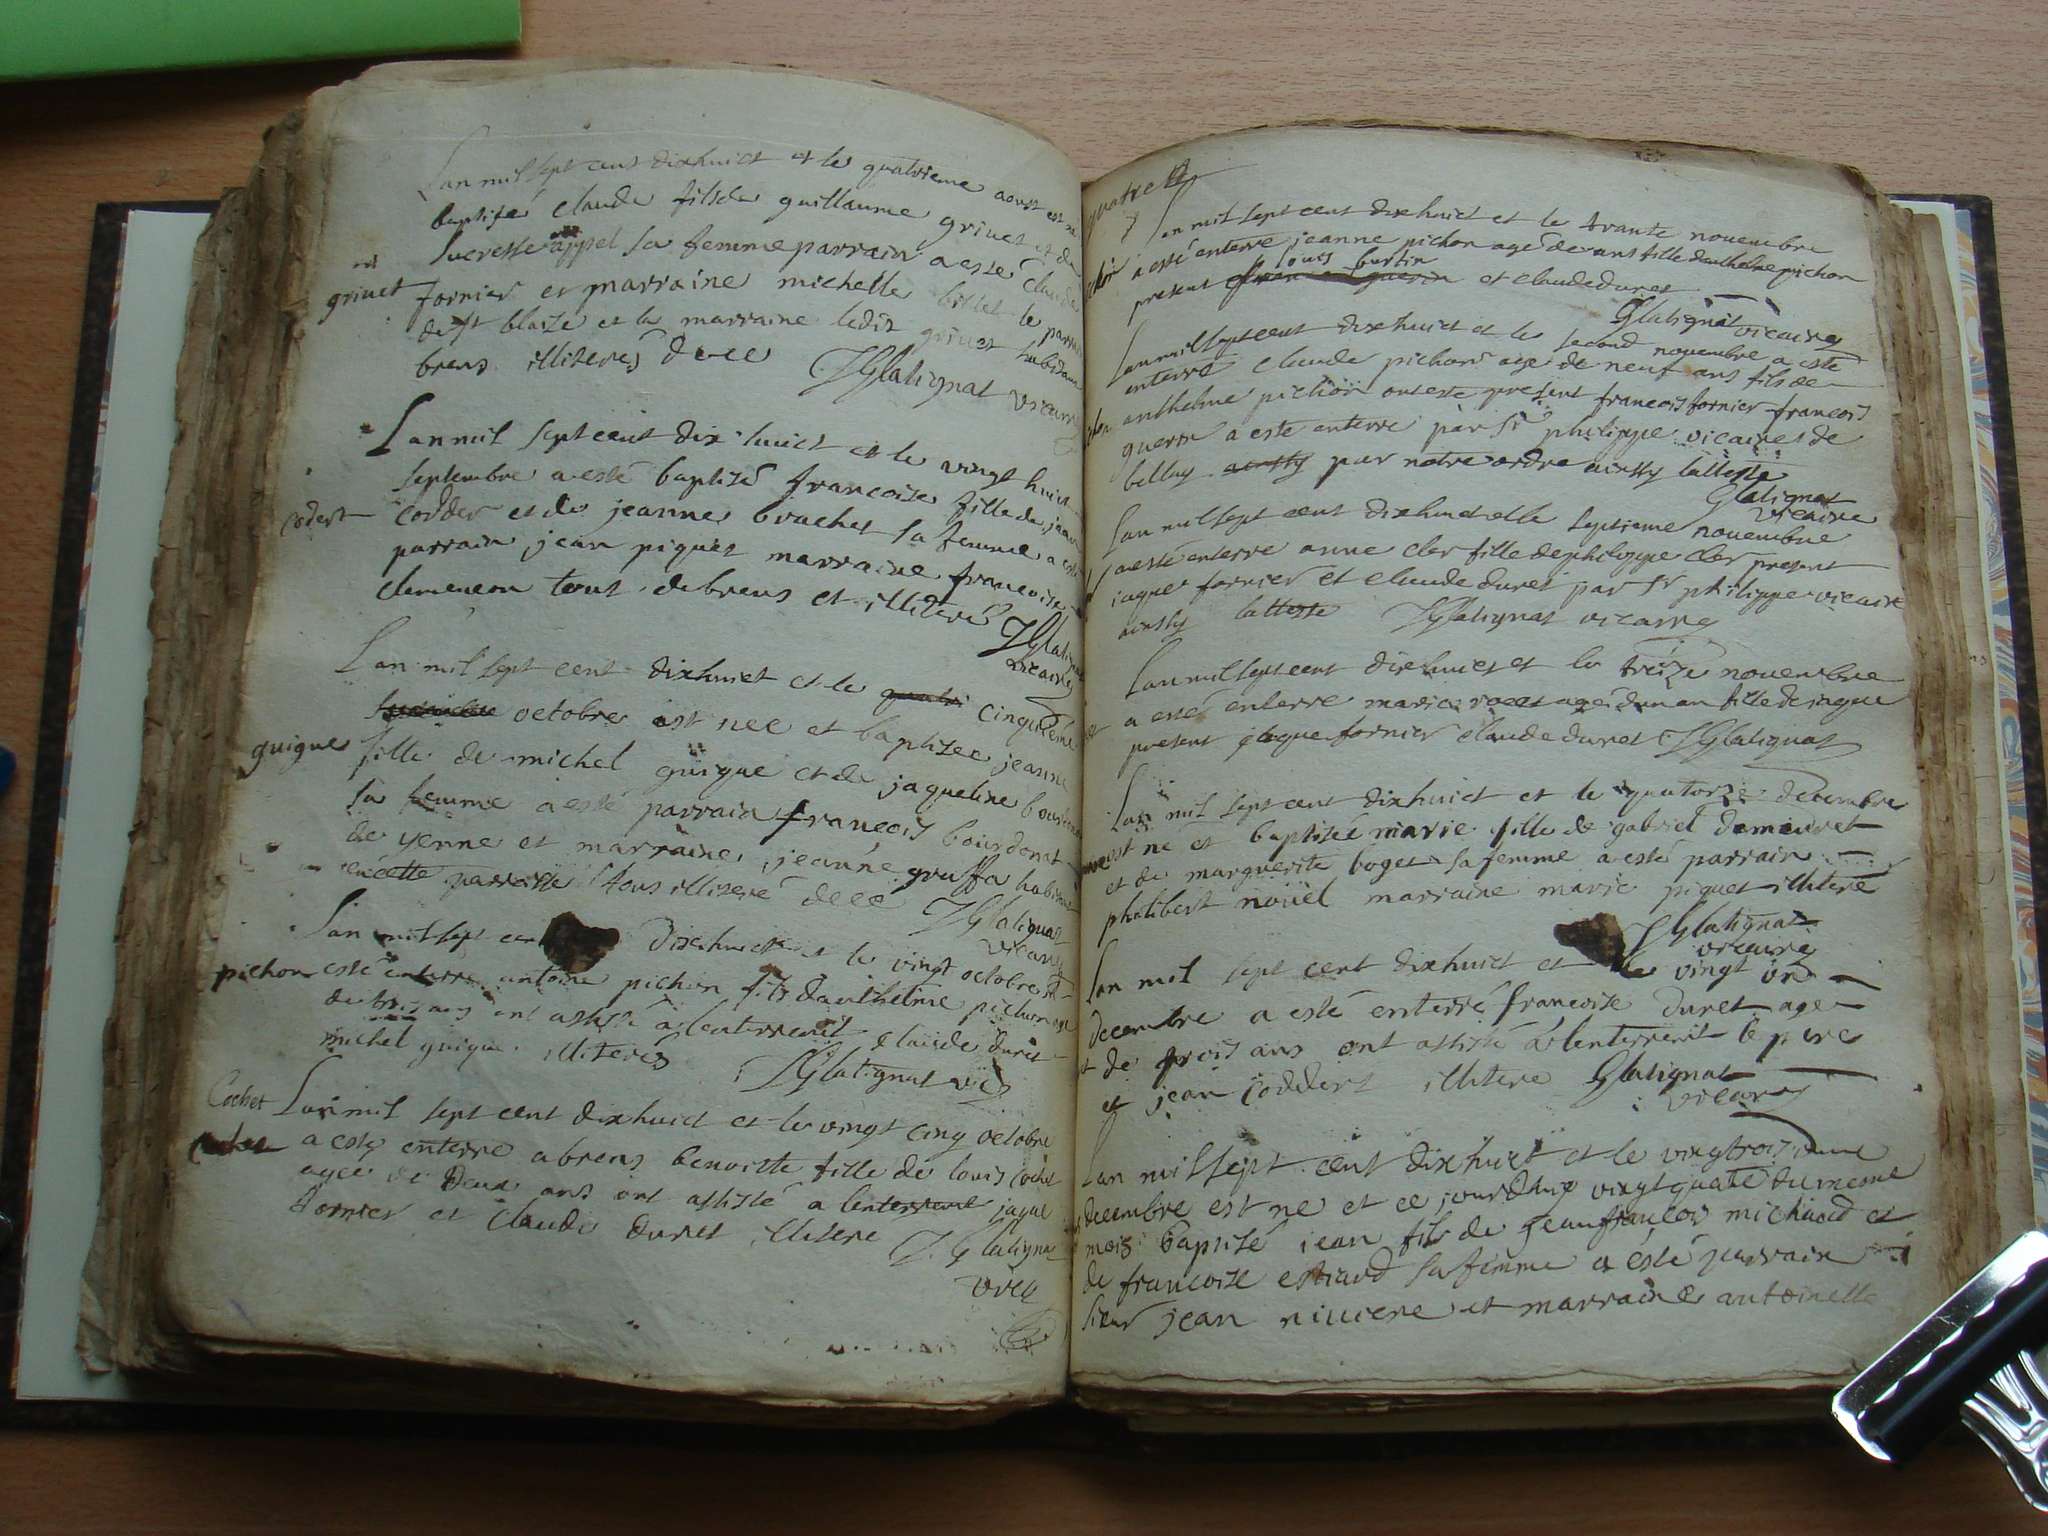 Lan mil sept cent dixhuict et le quatrieme aoust est né
baptisé claude fils de guillaume grivet et de
lucresse appel sa femme parrain a esté claude
grivet
fornier et marraine michelle billet le parrain
de st blaise et la marraine ledit grivet habitant
brens illiteres dece JGlatignat vicaire
Lan mil sept cent dix huict et le vingt huict
septembre a esté baptisé francoise fille de jean
codert
codder et de jeanne brachet sa femme a esté
parrain jean piquet marraine francoise
clemencon tout de brens et illiteré
JGlatignat
vicaire
Lan mil sept cent dixhuict et le quatri cinquiéme
octobre est nee et baptisee jeanne
guigue
fille de michel guigue et de jaqueline
sa femme a esté parrain francois bourdonat
de yenne et marraine jeanne gruffa habitant
en cette parroisse tous illiteré dece JGlatignat
vicaire
Lan mil sept cent dixhuict et le vingt octobre a
pichon
esté enterré antoine pichon fils danthelme pichon age
de trois ans ont assisté a lenterremt claude duret
michel guigue illiterés JGlatignat vice
Cochet
Lan mil sept cent dixhuict et le vingt cinq octobre
a esté enterre a brens benoitte fille de louis cochet
agee de deux ans ont assisté a lenterrement jaque
fornier et claude duret illitere J Glatignat
vice
Lan mil sept cent dixhuict et le trante novembre
a esté enterre jeanne pichon agé de ans fille danthelme pichon
louis burtin
present et claude duret
Glatignat vicaire
Lan mil sept cent dixhuict et le second novembre a esté
enterré claude pichon age de neuf ans fils de
anthelme pichon ont esté present francois fornier francois
guerin a esté enterré par sr philippe vicaire de
belley ainsty par notre ordre ainsty latteste
Glatignat
vicaire
Lan mil sept cent dixhuict et le septieme novembre
a esté enterre anne cler fille de philippe cler present
jaque fornier et claude duret par sr philippe vicaire
ainsty latteste JGlatignat vicaire
Lan mil sept cent dixhuict et le treize novembre
a esté enterre marie agé dun an fille de jaque
present jaque fornier claude duret JGlatignat
Lan mil sept cent dixhuict et le quatorze decembre
est né et baptisée marie fille de gabriel demeuret
et de marguerite boget sa femme a esté parrain
philibert noüel marraine marie piquet illitere
JGlatignat
vicaire
Lan mil sept cent dixhuict et le vingt un
decembre a esté enterré francoise duret age
de trois ans ont assisté a lenterremt le pere
et jean coddert illitere Glatignat
vicaire
Lan mil sept cent dixhuict et le vingtroisieme
decembre est ne et ce jourdhuy vingt quatre du mesme
mois baptisé jean fils de jean francois michaud et
de francoise estiard sa femme a esté parrain
sieur jean riviere et marraine antoinette